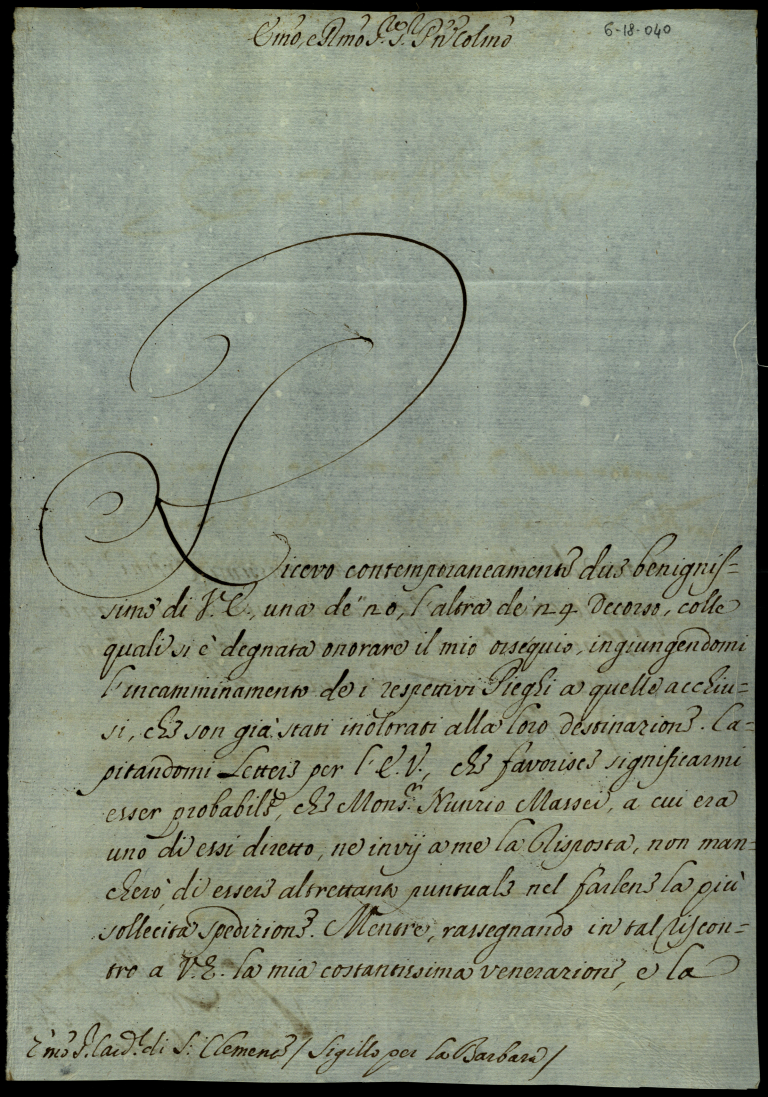 Emo, e Rmo Sre Sre Prn Colmo
6-18-040
Ricevo contemporaneamente due benignis=
sime di V. E., una de' 20, l'altra de' 24 Decorso, colle
quali si è degnata onorare il mio ossequio, ingiungendomi
l'incamminamento de i respettivi Pieghi a quelle acchiu=
si, che son già stati inoltrati alla loro destinazione. Ca=
pitandomi Lettere per l'E. V., che favorisce significarmi
esser probabile, che Monsre Nunzio Massei, a cui era
uno di essi diretto, ne invij a me la Risposta, non man=
cherò di essere altrettanto puntuale nel farlene la più
sollecita spedizione. Mentre, rassegnando in tal riscon=
tro a V. E. la mia costantissima venerazione, e la
Emo Sr. Cardl. di S. Clemente / Sigillo per la Barbara /